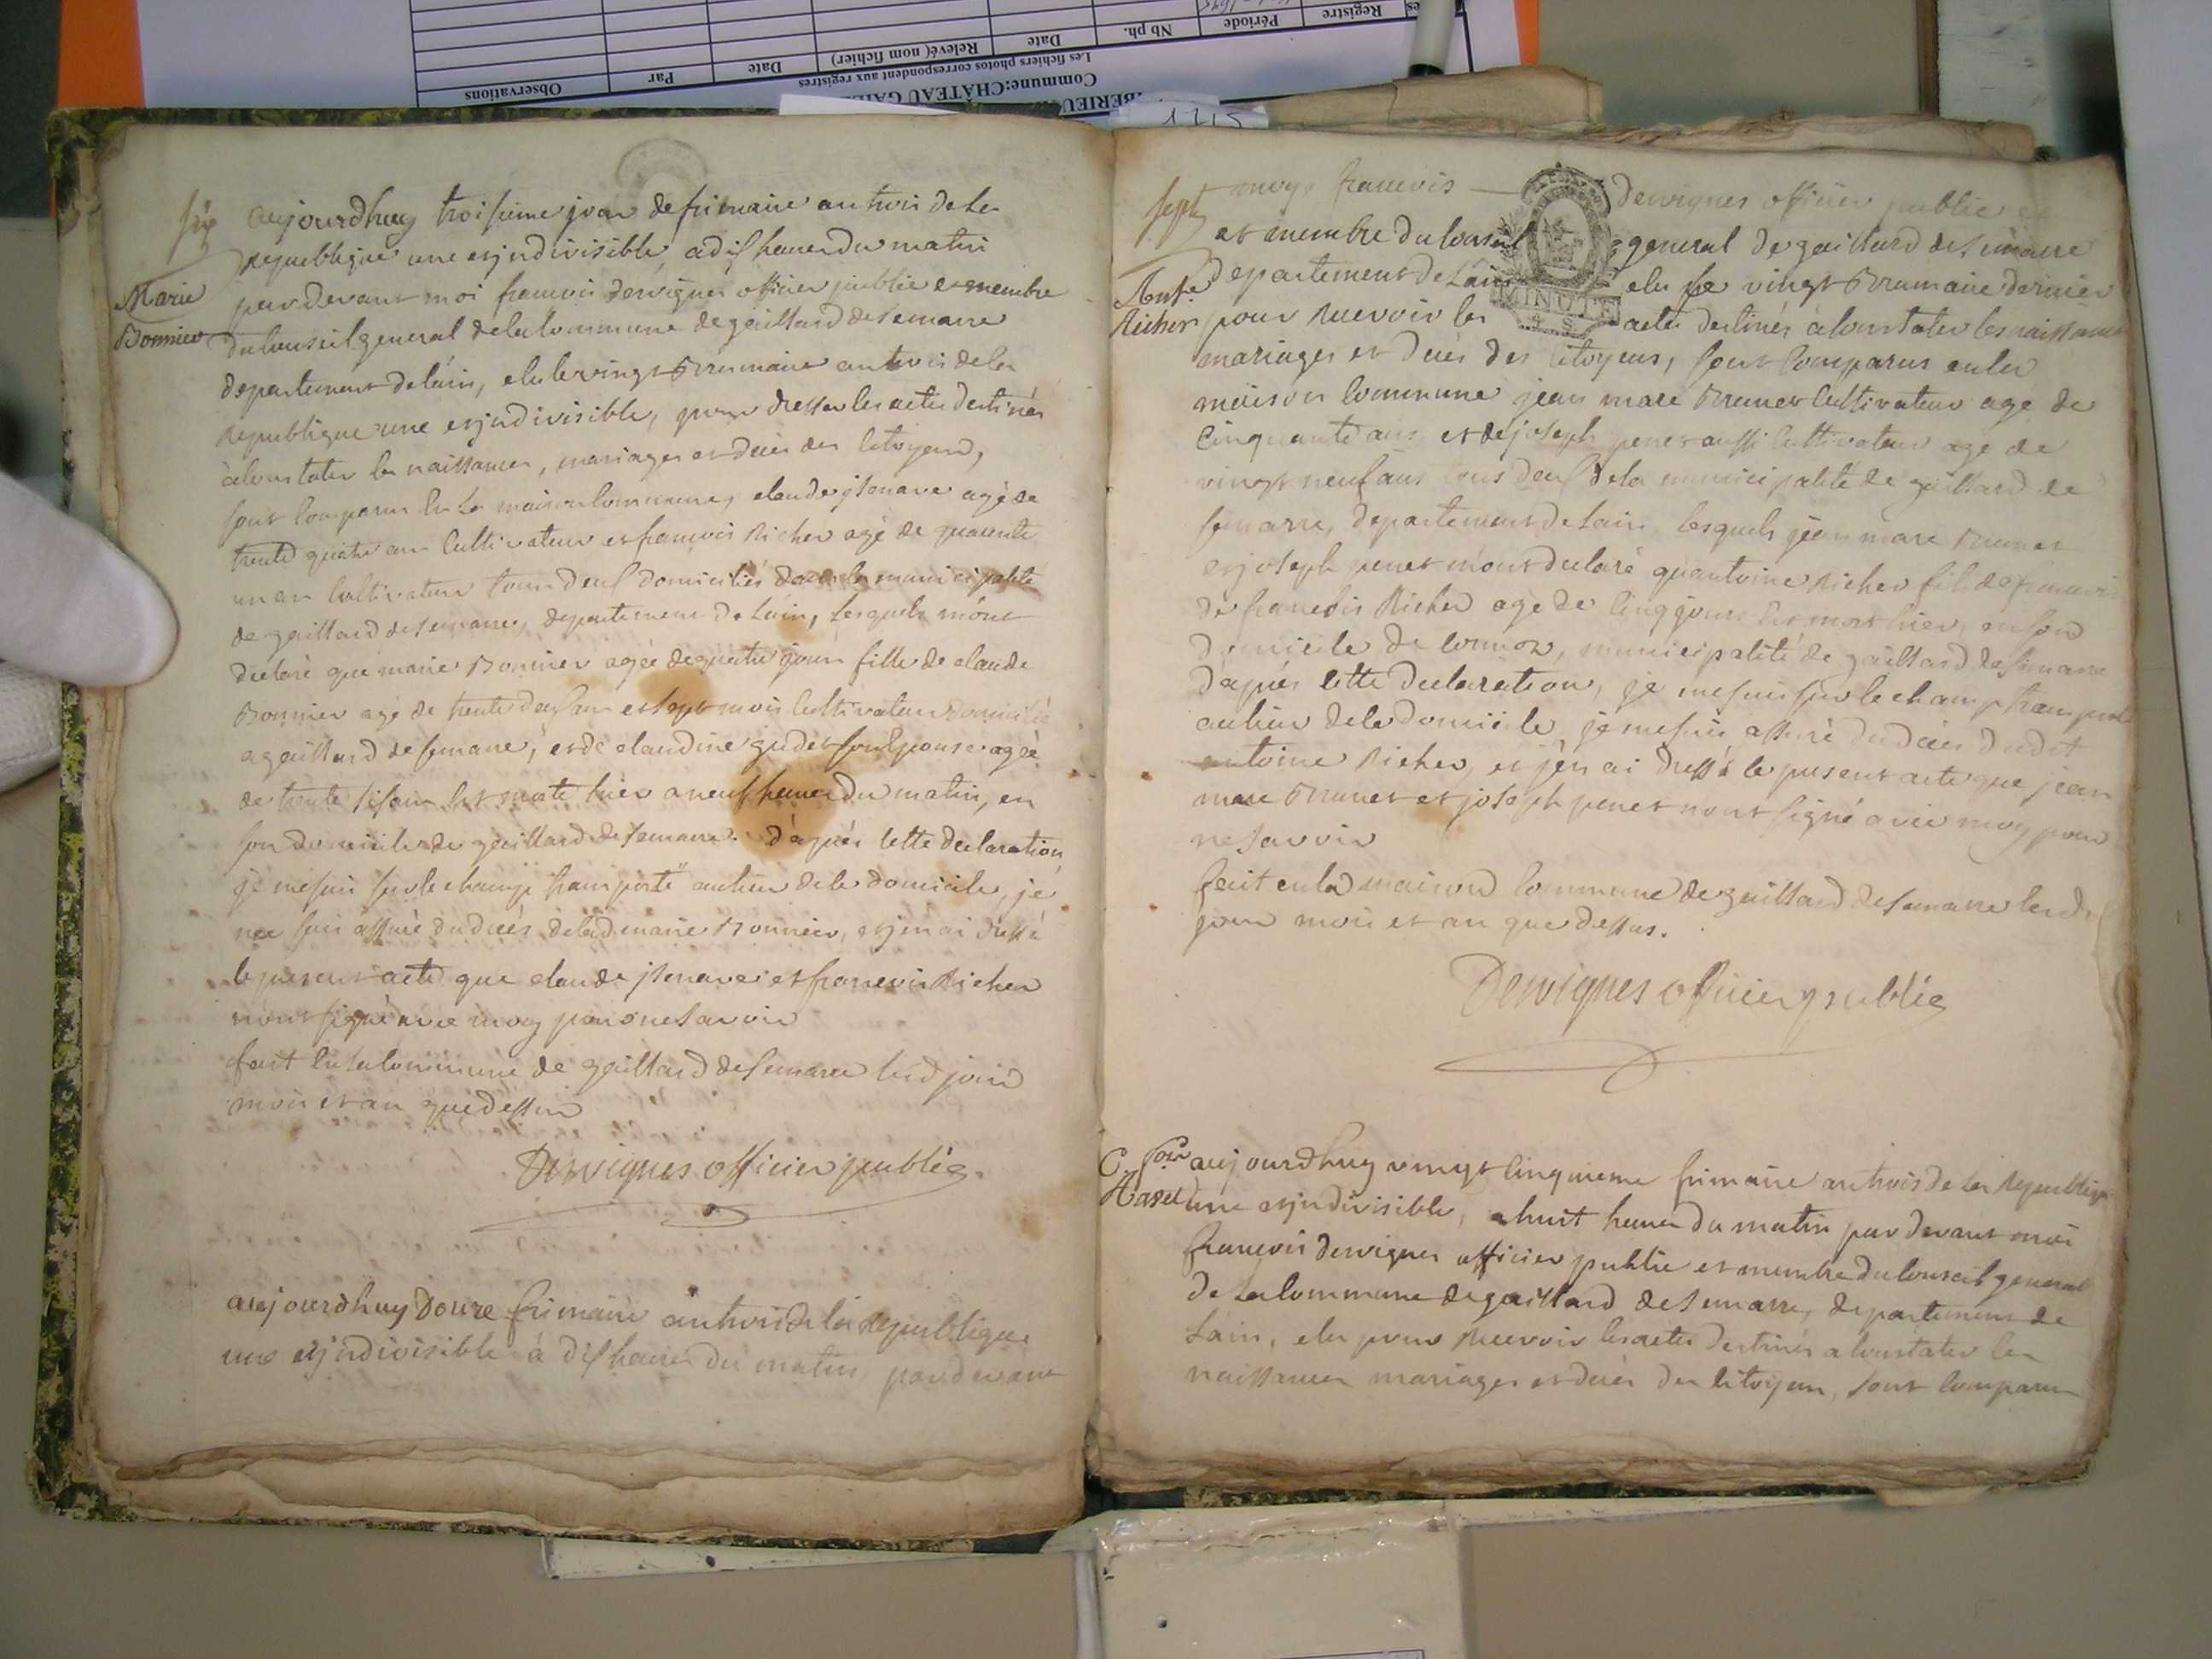 Observations
Par
Date
Relevé( nom fichier)
Date
Nb ph.
Période
Registre
Les fichiers photos correspondent aux registres
Commune:CHÂTEAU GAI
BERIEU
1715
six
Marie
Bonnier
aujourdhuy troisieme jour de frimaire an trois de la
republique une et jndivisible, a dix heures du matin
par devant moi francois desvignes officier public et membre
du conseil general de la commune de gaillard de semarre
departement de lain, elu le vingt brumaire an trois de la
republique une et jndivisible, pour dresser les actes destinés
à constater les naissances, mariages et deces des citoyens,
sont comparus en la maison commune, claude jsenave agé de
trente quatre ans cultivateur et francois Richer agé de quarente
un an cultivateur tous deux domiciliés dans la municipalité
de gaillard de semarre, departement de Lain, Lesquels m'ont
declaré que marie Bonnier agée de quatre jours fille de claude
Bonnier agé de trente deux ans et sept mois cultivateur domicilié
a gaillard de semarre, et de claudine gudet son epouse agée
de trente six ans est morte hier a neuf heures du matin, en
son domicile de gaillard de semarre. d'après cette declaration
je me suis sur le champ transporté au lieu de ce domicile, je
me suis assuré du decès de lad marie Bonnier, et j'en ai dressé
le present acte que claude jsenave et francois Richer
n'ont signé avec moy pour ne savoir
fait en la commune de gaillard de semarre lesd jour
mois et an que dessus
Desvignes officier public
aujourdhuy Douze frimaire an trois de la republique
une et jndivisible à dix heures du matin, par devant
sept
Ant.e
Richer
moy francois desvignes officier public et
et membre du conseil general de gaillard de semarre
departement de Lain elu le vingt Brumaire dernier
pour recevoir les actes destinés à constater les naissances
MINUTE
mariages et decès des citoyens, sont comparus en la
maison commune jean marc Brunet cultivateur agé de
cinquante ans et de joseph penet aussi cultivateur agé de
vingt neuf ans tous deux de la municipalité de gaillard de
semarre, departement de Lain, Lesquels jean marc Brunet
et joseph penet m'ont declaré qu'antoine Richer fils de francois
de francois Richer agé de cinq jours est mort hier, en son
domicile de cormoz, municipalité de gaillard de semarre
d'après cette declaration, je me suis sur le champ transporté
au lieu de ce domicile, je me suis assuré du decès dudit
antoine Richer, et j'en ai dressé le present acte que jean
marc Brunet et joseph penet n'ont signé avec moy pour
ne savoir
fait en la maison commune de gaillard de semarre lesd
jour mois et an que dessus.
Desvignes officier public
aujourdhuy vingt cinquieme frimaire an trois de la republique
une et jndivisible, a huit heures du matin par devant moi
francois desvignes officier public et membre du conseil general
de la commune de gaillard de semarre, departement de
Lain, elu pour recevoir les actes destinés a constater les
naissances mariages et decès des citoyens, sont comparus